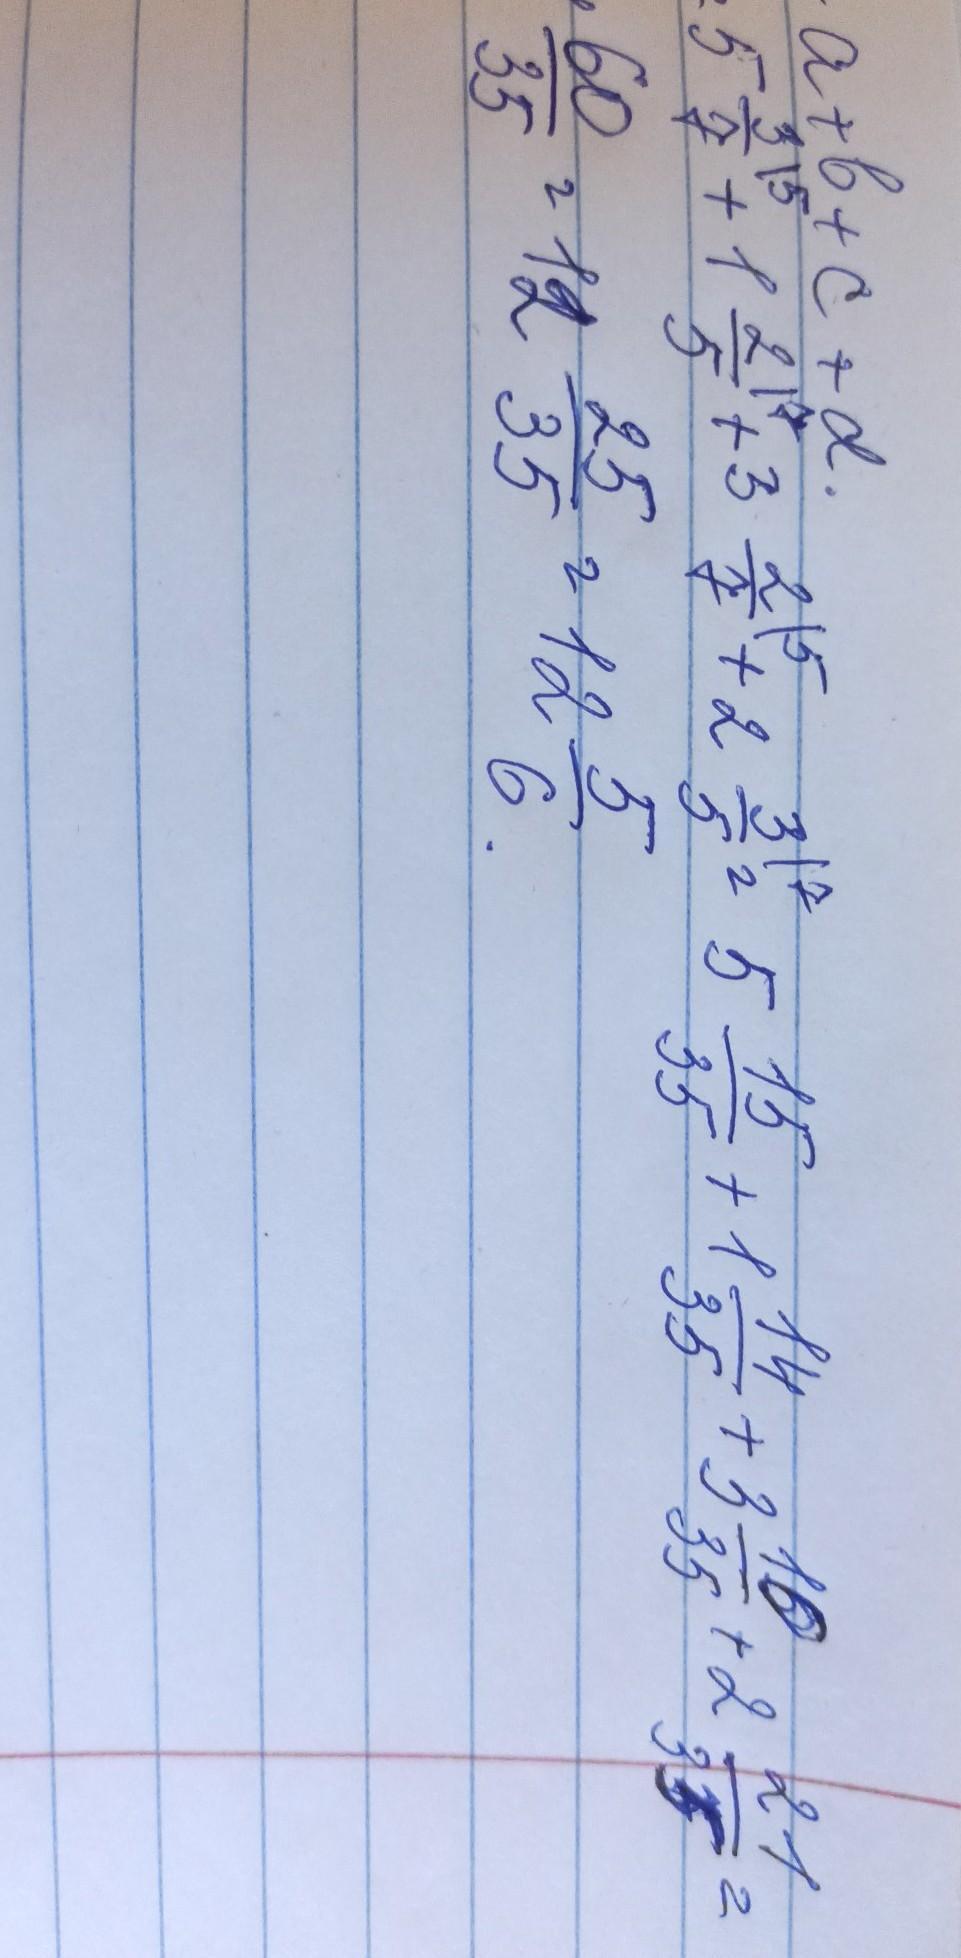 a + b + c + d.
= 5 3/7 \5 + 1 2/5 \7 + 3 2/7 \5 + 2 3/5 \7 = 5 15/35 + 1 14/35 + 3 10/35 + 2 21/35 =
60/35 = 12 25/35 = 12 5/6.